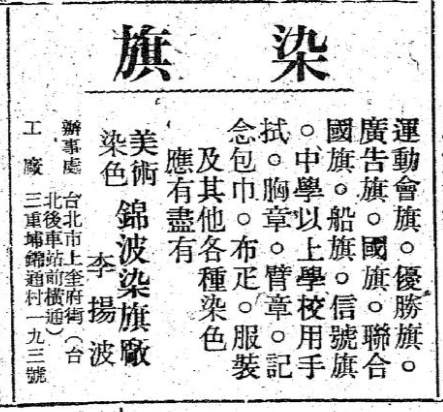 染旗
運動會旗。優勝旗。
廣告旗。國旗。聯合
國旗。船旗。信號旗
。中學以上學校用手
拭。胸章。臂章。記
念包巾。布疋。服裝
及其他各種染色
應有盡有
美術染色 錦波染旗廠
李揚波
辦事處 台北市上奎府街(台
北後車站前橫通)
工廠 三重埔錦通村一九三號